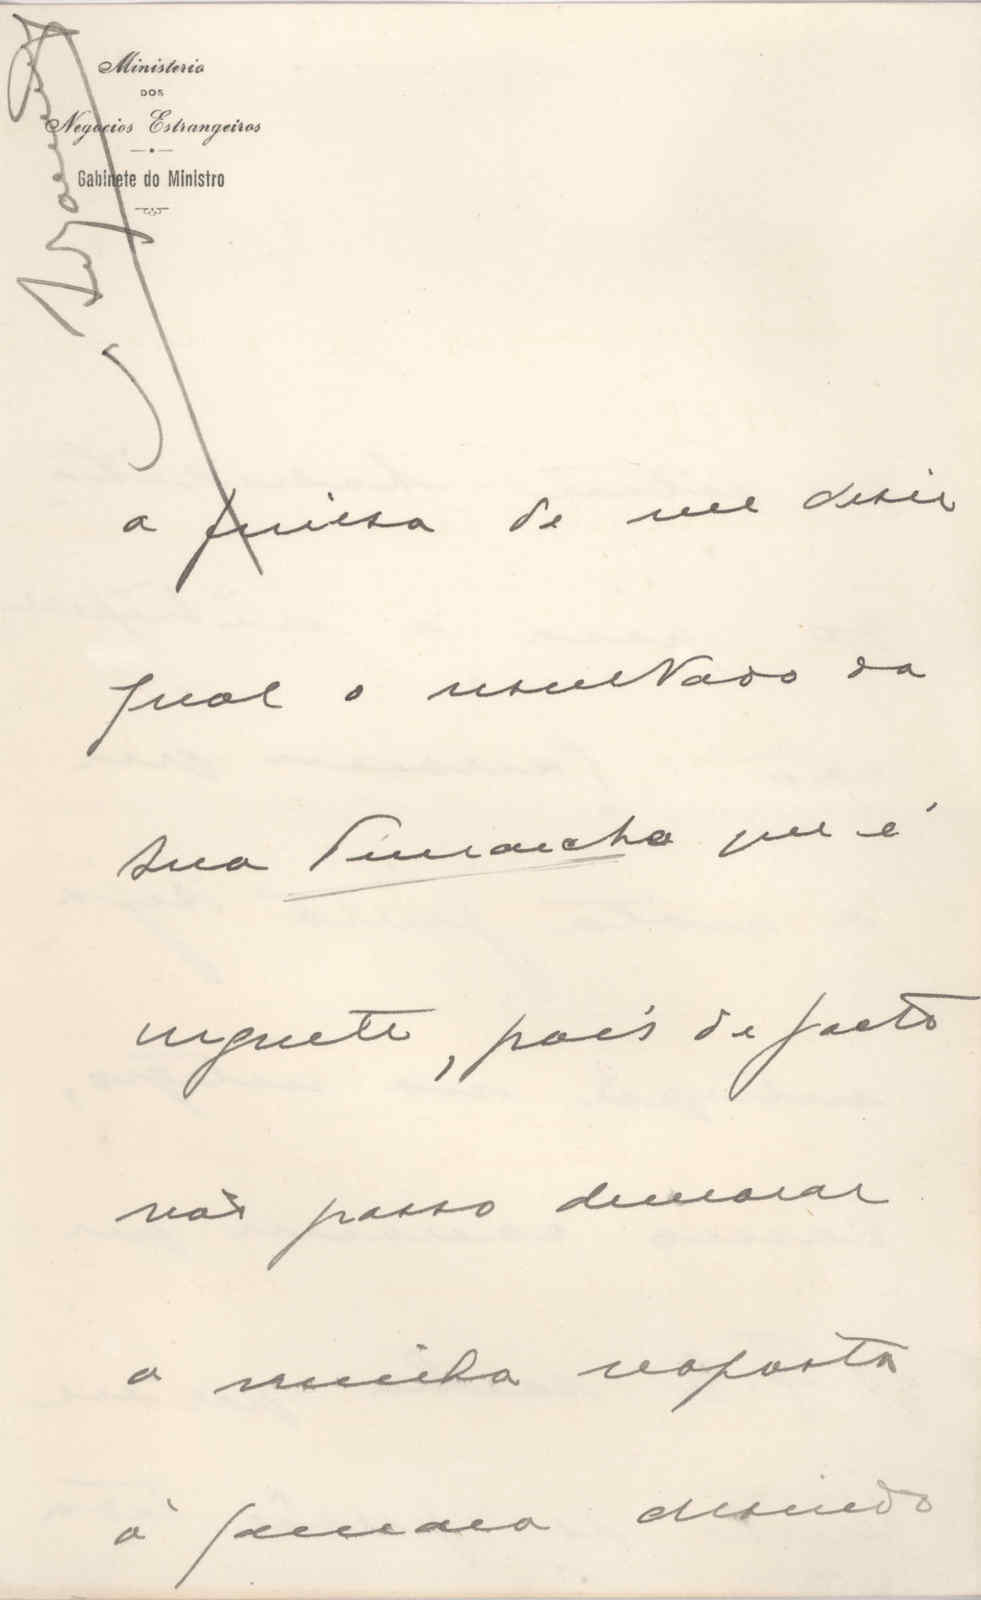 Ministerio
DOS
Negocios Estrangeiros
Gabinete do Ministro
a fineza de me dizer
qual o resultado da
sua demarche que é
urgente, pois de facto
não posso demorar
a minha resposta
á Camara devendo